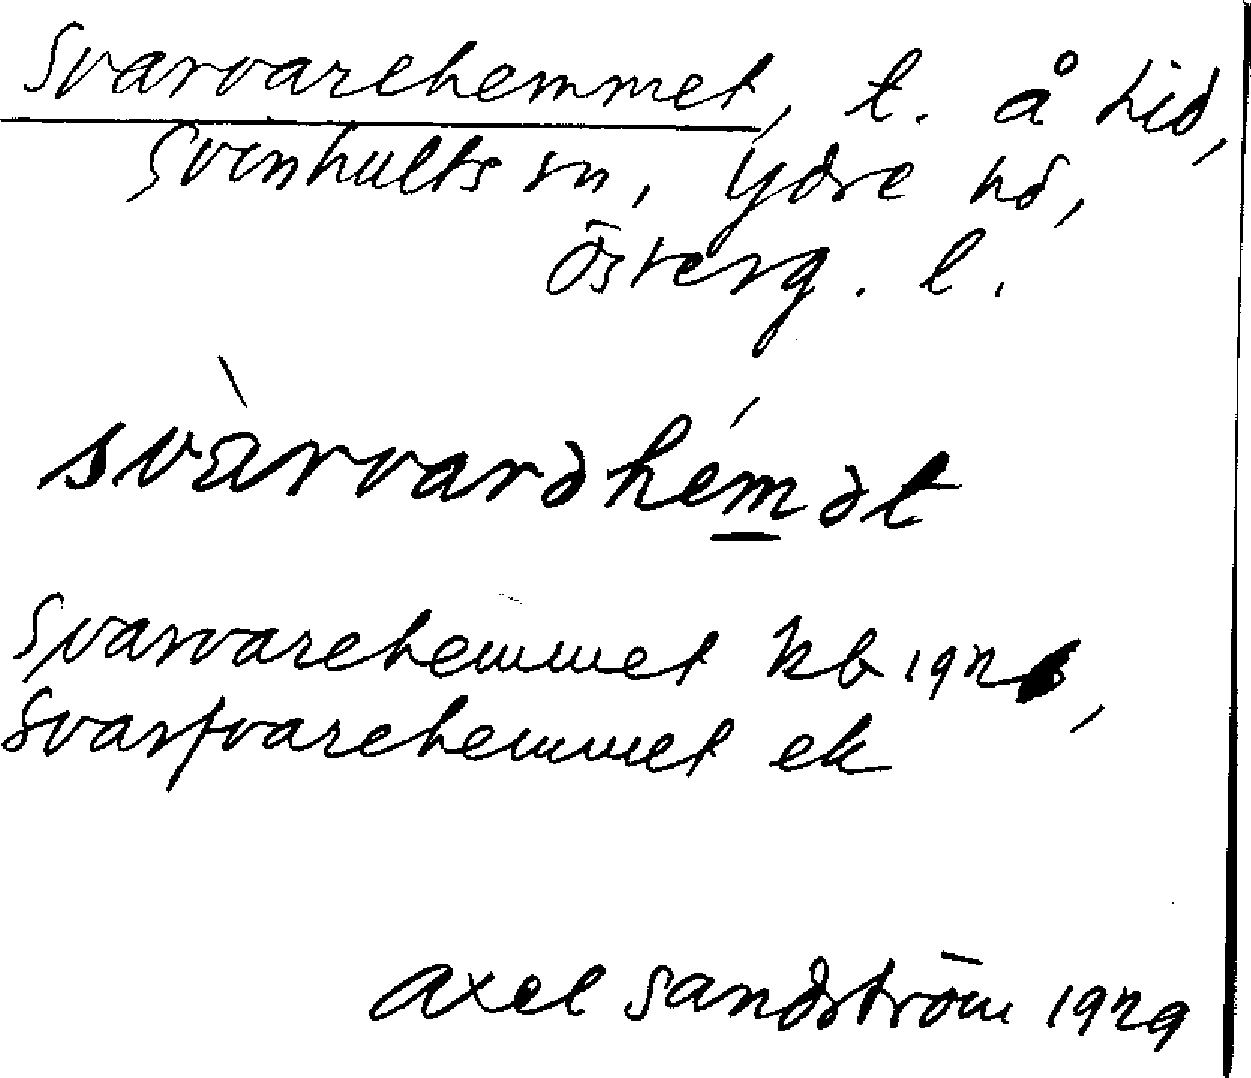 Svarvarehemmet, t. å Lid,
Svinhults sn, Ydre hd,
Österg. l.
svàrvarəhémət
Svarvarehemmet kb 192
Svarfvarehemmet ek
Axel Sandström 1929